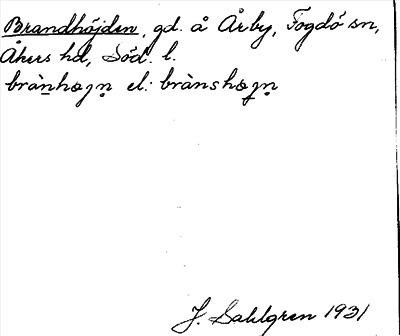 Brandhöjden, gd. å Årby, Fogdö sn,
Åkers hd, Söd. l.
brànhœȷn̥ el. brànshœȷn̥
J. Sahlgren 1931